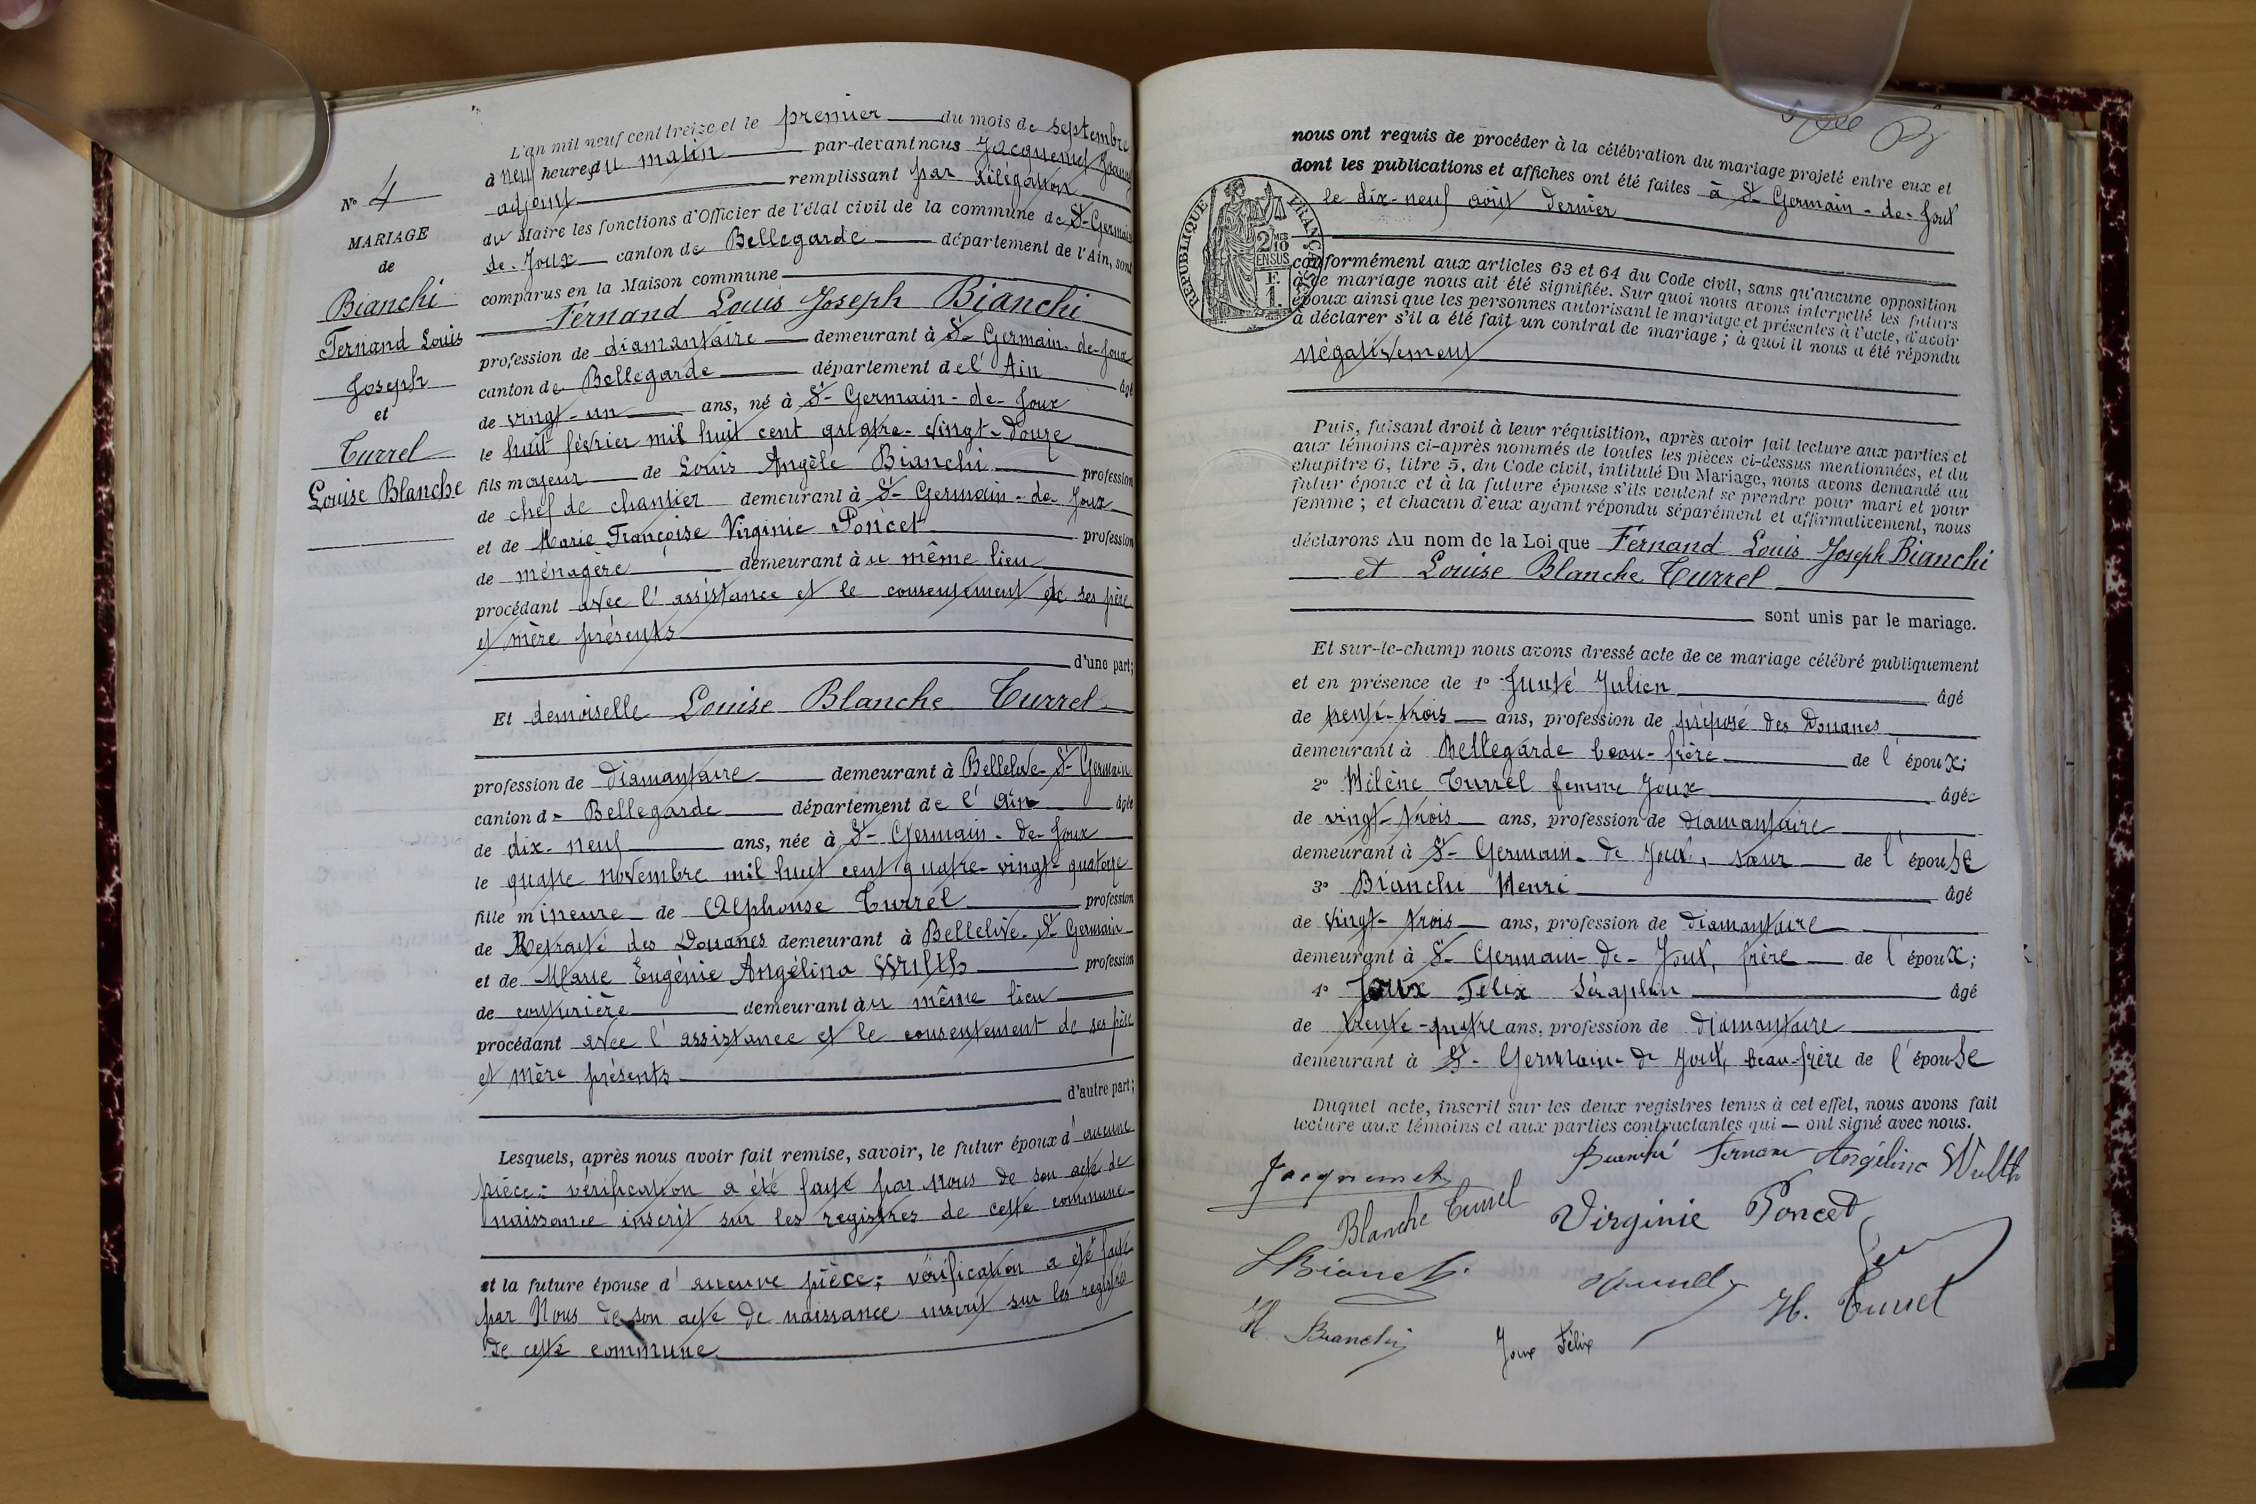 N° 4
MARIAGE
de
Bianchi
Fernand Louis
Joseph
et
Turrel
Louise Blanche
L'an mil neuf cent treize et le premier du mois de septembre
à neuf heures du matin par-devant nous Jacquemet
adjoint remplissant par délégation
du Maire les fonctions d'Officier de l'état civil de la commune de St-Germain
de-Joux canton de Bellegarde département de l'Ain, sont
comparus en la Maison commune
Fernand Louis Joseph Bianchi
profession de diamantaire demeurant à St-Germain-de-Joux
canton de Bellegarde département de l'Ain âgé
de vingt-un ans, né à St-Germain-de-Joux
le huit février mil huit cent quatre-vingt-douze
fils majeur de Louis Angèle Bianchi profession
de chef de chantier demeurant à St-Germain-de-Joux
et de Marie Françoise Virginie Poncet profession
de ménagère demeurant au même lieu
procédant avec l'assistance et le consentement de ses père
et mère présents
d'une part;
Et demoiselle Louise Blanche Turrel
profession de diamantaire demeurant à Bellelive-St-Germain
canton de Bellegarde département de l'Ain âgée
de dix-neuf ans, née à St-Germain-de-Joux
le quatre novembre mil huit cent quatre-vingt-quatorze
fille mineure de Alphonse Turrel profession
de Retraité des Douanes demeurant à Bellelive-St-Germain
et de Marie Eugénie Angélina Wulth profession
de couturière demeurant au même lieu
procédant avec l'assistance et le consentement de ses père
et mère présents
d'autre part;
Lesquels, après nous avoir fait remise, savoir, le futur époux d'aucune
pièce: vérification a été faite par Nous de son acte de
naissance inscrit sur les registres de cette commune
et la future épouse d'aucune pièce; vérification a été faite
par Nous de son acte de naissance inscrit sur les registres
de cette commune
nous ont requis de procéder à la célébration du mariage projeté entre eux et
dont les publications et affiches ont été faites à St-Germain-de-Joux
le dix-neuf août dernier
REPUBLIQUE FRANÇAISE
2 MES
10
EN SUS
1 F.
conformément aux articles 63 et 64 du Code civil, sans qu'aucune opposition
à ce mariage nous ait été signifiée. Sur quoi nous avons interpellé les futurs
époux ainsi que les personnes autorisant le mariage et présentes à l'acte, d'avoir
à déclarer s'il a été fait un contrat de mariage; à quoi il nous a été répondu
négativement
Puis, faisant droit à leur réquisition, après avoir fait lecture aux parties et
aux témoins ci-après nommés de toutes les pièces ci-dessus mentionnées, et du
chapitre 6, titre 5, du Code civil, intitulé Du Mariage, nous avons demandé au
futur époux et à la future épouse s'ils veulent se prendre pour mari et pour
femme; et chacun d'eux ayant répondu séparément et affirmativement, nous
déclarons Au nom de la Loi que Fernand Louis Joseph Bianchi
et Louise Blanche Turrel
sont unis par le mariage.
Et sur-le-champ nous avons dressé acte de ce mariage célébré publiquement
et en présence de 1° Julien âgé
de trente-trois ans, profession de préposé des Douanes
demeurant à Bellegarde beau-frère de l'époux;
2° Hélène Turrel femme Joux âgée
de vingt-trois ans, profession de diamantaire
demeurant à St-Germain-de Joux, sœur de l'épouse
3° Bianchi Henri âgé
de vingt-trois ans, profession de diamantaire
demeurant à St-Germain-de-Joux, frère de l'époux;
4° Joux Félix Séraphin âgé
de trente-quatre ans, profession de diamantaire
demeurant à St-Germain-de Joux, beau-frère de l'épouse
Duquel acte, inscrit sur les deux registres tenus à cet effet, nous avons fait
lecture aux témoins et aux parties contractantes qui — ont signé avec nous.
Jacquemet Bianchi Fernand Angélina Wulth
Blanche Turrel Virginie Poncet
L Bianchi
H. Turrel
H. Bianchi Joux Félix